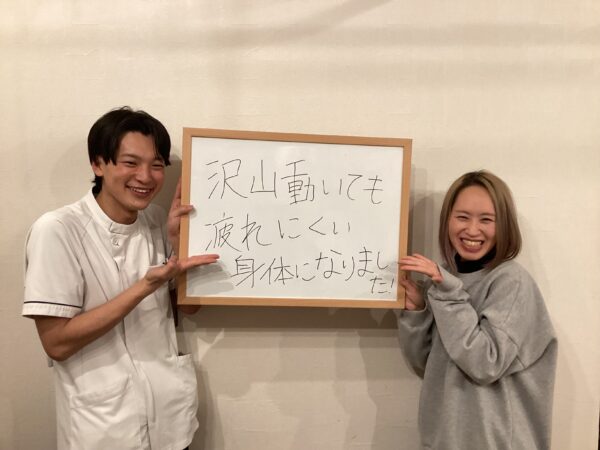 沢山動いても
疲れにくい
身体になりまし
た!